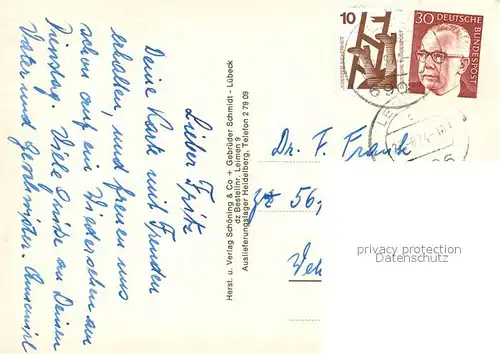 Lieber Fritz
Deine Karte mit Freuden
erhalten, und freuen uns
schon auf ein Wiedersehen am
Dienstag. Viele Grüße an Deinen
Vater und Großmutter.
Herst. u. Verlag Schöning & Co + Gebrüder Schmidt - Lübeck
dz Bestellnr. Leimen 9
Auslieferungslager Heidelberg, Telefon 2 79 09
10
30 DEUTSCHE
BUNDESPOST
Dr. F. Frank
56,
privacy protection
Datenschutz